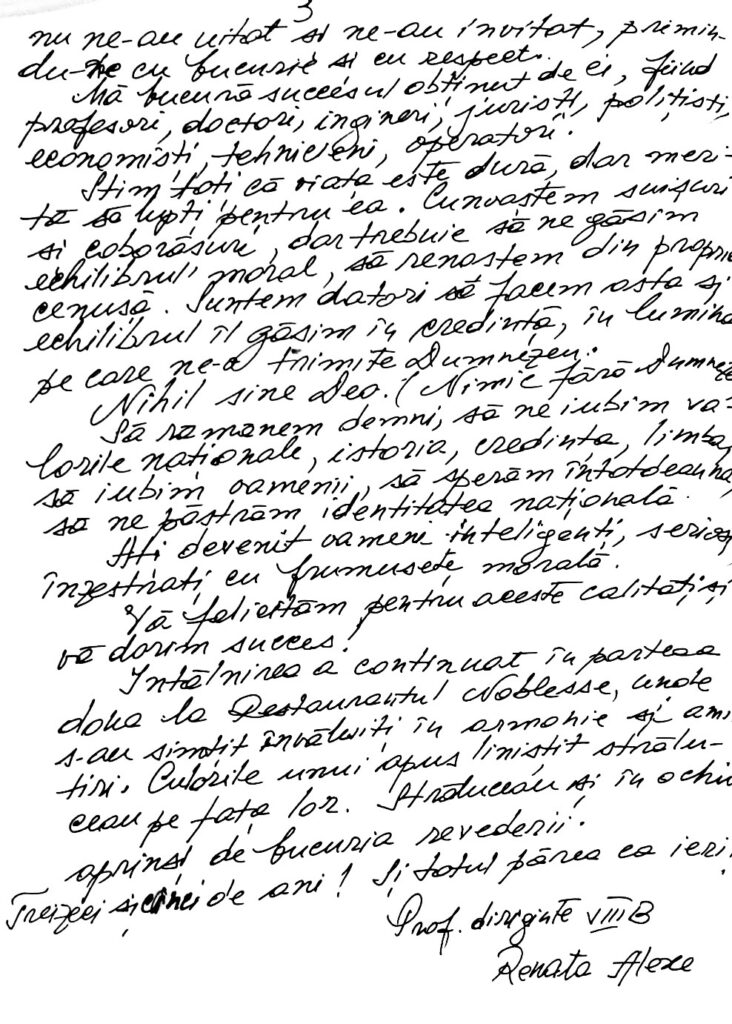 3
nu ne-au uitat si ne-au invitat, primin-
du-ne cu bucurie si cu respect.
Mă bucură succesul obtinut de ei, fiind
profesori, doctori, ingineri, juristi, politisti,
economisti, tehnicieni, operatori.
Stim toti că viata este dură, dar meri-
tă să lupti pentru ea. Cunoastem suisuri
si coborăsuri, dar trebuie să ne găsim
echilibrul moral, să renastem din propri
cenusă. Suntem datori să facem asta si
echilibrul îl găsim în credintă, în lumina
pe care ne-a trimite Dumnezeu.
Nihil sine Deo. (Nimic fără Dumneze
Să ramanem demni, să ne iubim va-
lorile naționale, istoria, credinta, limba,
să iubim oamenii, să sperăm întotdeauna,
să ne păstrăm identitatea natională.
Ati devenit oameni inteligenti, serios
înzestrati cu frumusete morală.
Vă felicităm pentru aceste calităti si
vă dorim succes!
Intâlnirea a continuat în partea a
doua la Restaurantul Noblesse, unde
s-au simtit învăluiti în armonie si ami
tiri. Culorile unui apus linistit strălu-
ceau pe fata lor. Străluceau si în ochii
aprinsi de bucuria revederii.
Treizeci si cinci de ani! Si totul părea ca ieri.
Prof. diriginte VIII B
Renata Alexe